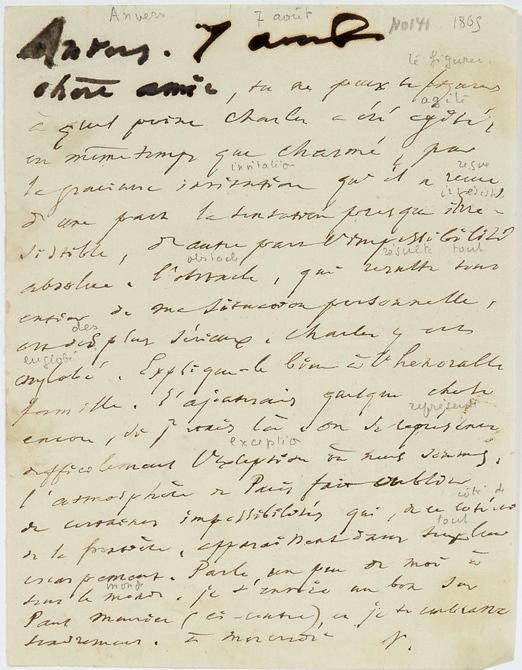 Anvers 7 août No 141 1865
Anvers. 7 août
te figurer
chère amie, tu ne peux te figurer
agité
à quel point Charles a été agité,
en même temps que charmé, par
invitation reçue
la gracieuse invitation qu'il a reçue
irrésistible
d'une part la tentation presque irré-
sistible, d'autre part l'impossibilité
obstacle résulte tout
absolue. l'obstacle, qui résulte tout
entier de ma situation personnelle,
des
est des plus sérieux. Charles y est
englobé
englobé. Explique-le bien à l'honorable
famille. J'ajouterais quelque chose
représenter
encore, si j'avais le don de représenter
exception
officiellement l'exception où nous sommes.
l'atmosphère de Paris fait oublier
côté de
de certaines impossibilités qui, de ce côté-ci
tout
de la frontière, apparaissent dans tout leur
escarpement. Parle un peu de moi à
monde
tout le monde. je t'envoie un bon sur
Paul Meurice (ci-contre), et je t'embrasse
tendrement. à mercredi V.